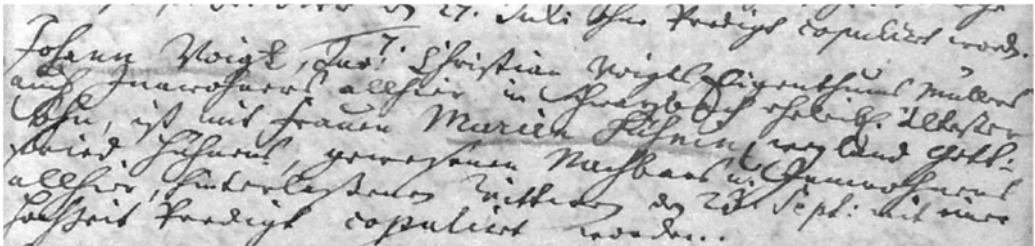 den 27. Juli ohne Predigt copuliret word.
7.
Johann Voigt, Jun: Christian Voigts Eigenthums Müllers
auch Innwohners allhier in Schwarzbach eheleibl. ältester
Sohn, ist mit Frauen Marien Hühnin, weyland Gott-
fried Hühnens, gewesenen Nachbars u. Innwohners
allhier, hinterlaßenen Wittwen den 28. Sept: mit einer
Hochzeit Predigt copuliret worden.